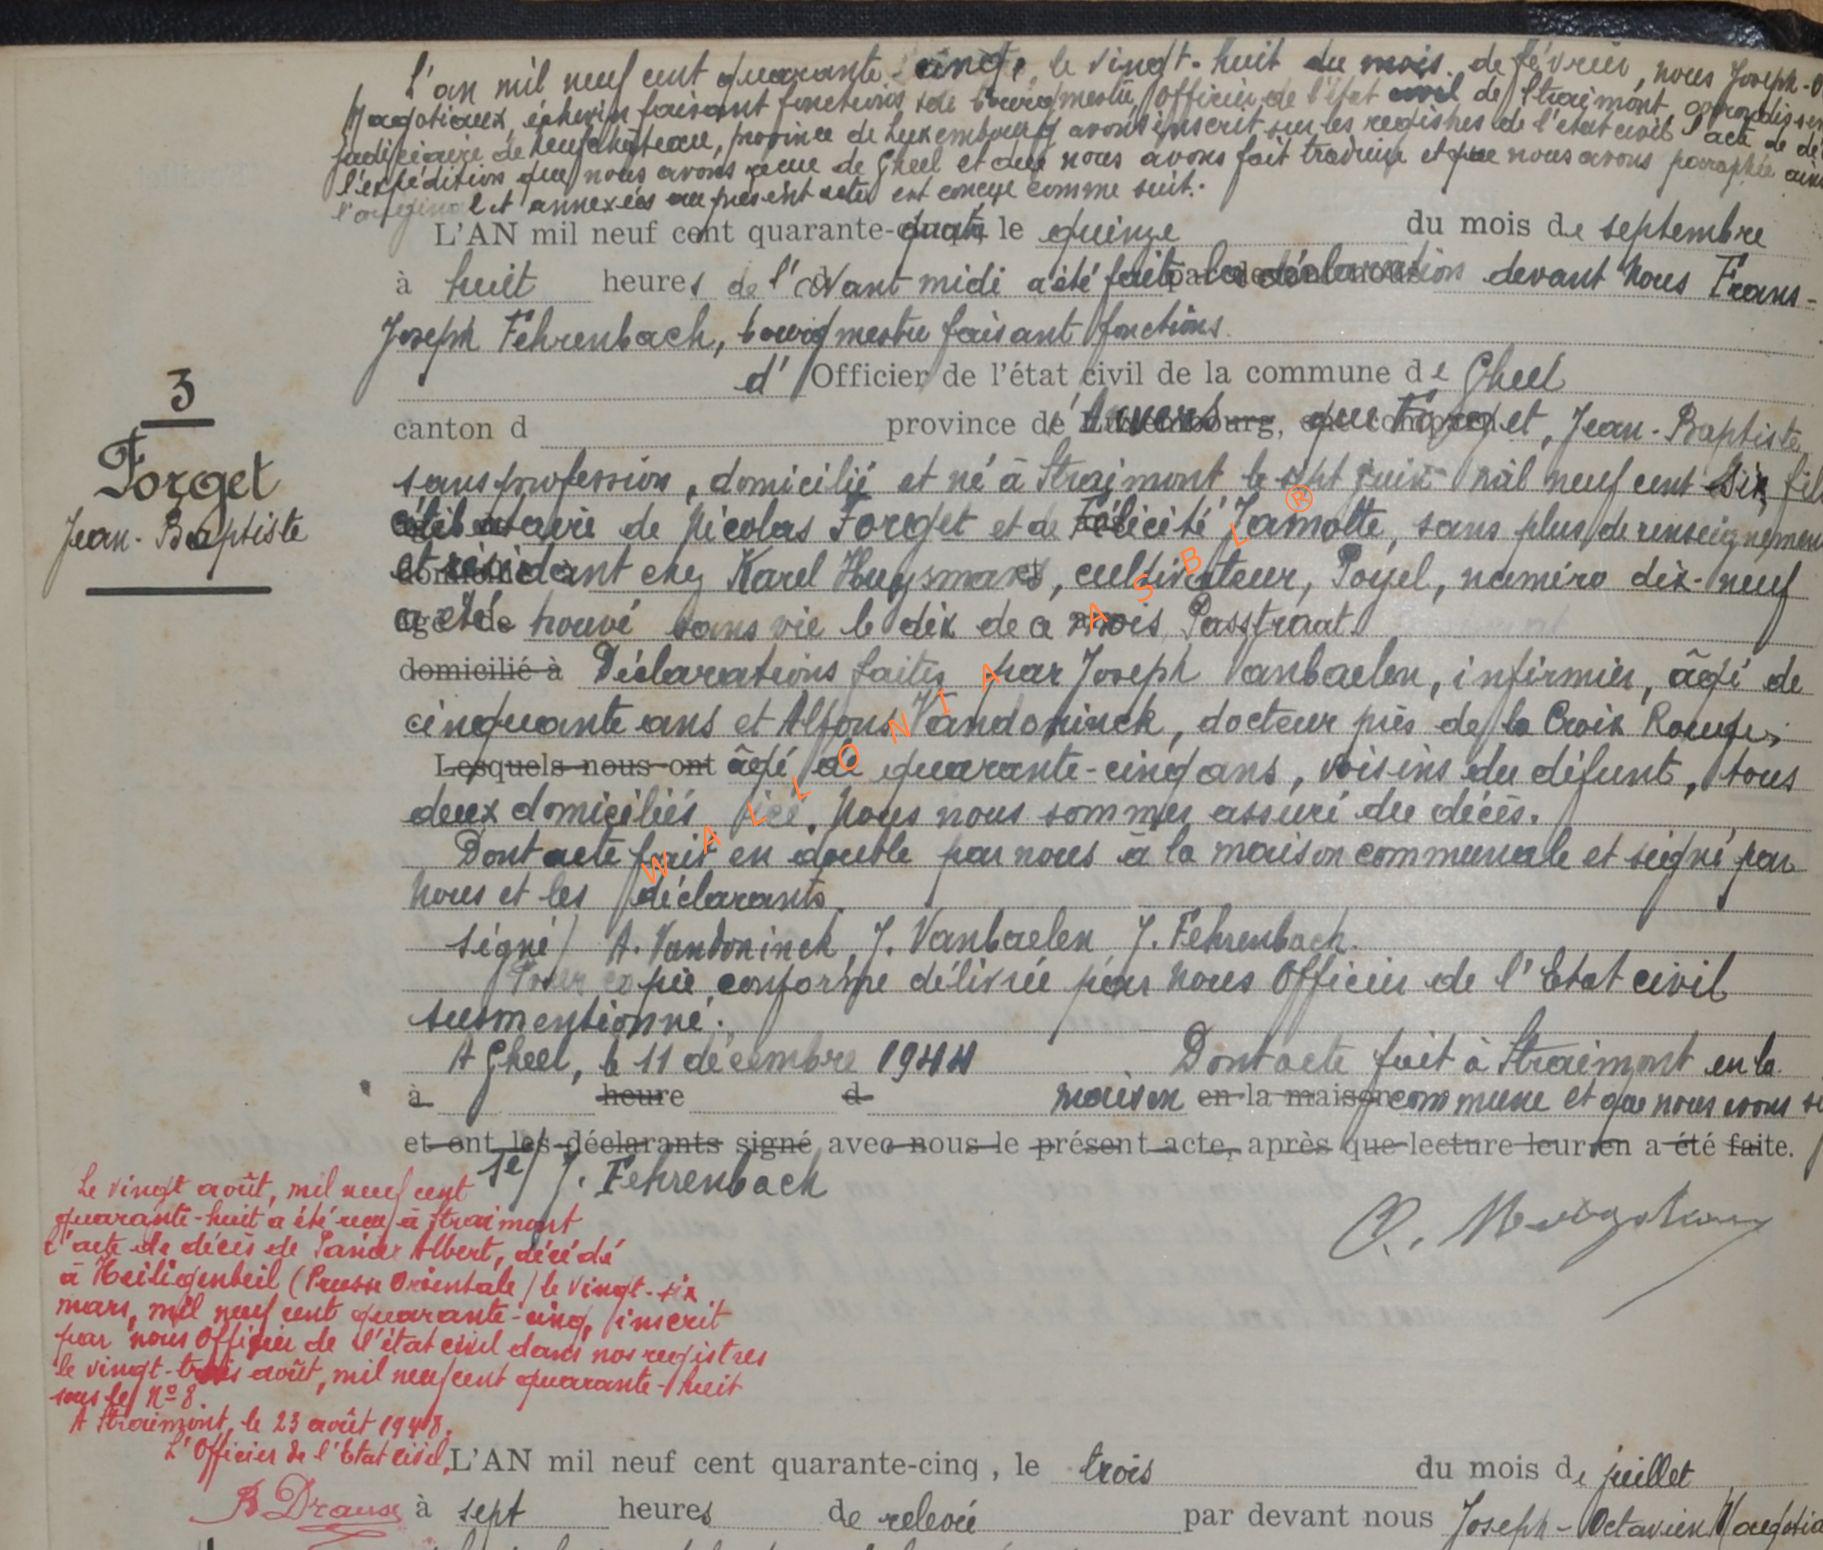 L'an mil neuf cent quarante-cinq, le vingt-huit du mois de février, nous Joseph-O
Magotiaux, échevin faisant fonctions de bourgmestre, Officier de l'état civil de Straimont, arrondissem
judiciaire de Neufchâteau, province de Luxembourg avons inscrit sur les registres de l'état civil l'acte de dé
l'expédition que nous avons reçue de Gheel et que nous avons fait traduire et que nous avons paraphée ains
l'original et annexées au présent actes est conçue comme suit:
L'AN mil neuf cent quarante-quatre le quinze du mois de septembre
à huit heures de l'avant midi a été faite la déclaration devant Nous Frans-
Joseph Fehrenbach, bourgmestre faisant fonctions
d'Officier de l'état civil de la commune de Gheel
canton d province de Anvers que Forget, Jean-Baptiste
sans profession, domicilié et né à Straimont le sept juin mil neuf cent six, fils
célibataire de Nicolas Forget et de Félicité Jamotte, sans plus de renseignemen
et résidant chez Karel Huysmans, cultivateur, Poyel, numéro dix-neuf
a été trouvé sans vie le dix de ce mois Passtraat.
domicilié à Déclarations faites par Joseph Vanbaelen, infirmier, âgé de
cinquante ans et Alfons Vandoninck, docteur près de la Croix Rouge,
Lesquels nous ont âgé de quarante-cinq ans, voisins du défunt, tous
deux domiciliés ici. Nous nous sommes assuré du décès.
Dont acte fait en double par nous à la maison communale et signé par
Nous et les déclarants.
signé) A. Vandoninck, J. Vanbaelen J. Fehrenbach.
Pour copie conforme délivrée par Nous Officier de l'Etat civil
susmentionné.
A Gheel, le 11 décembre 1944 Dont acte fait à Straimont en la
à heure d maison en la maison commune et que nous avons si
et ont les déclarants signé avec nous le présent acte, après que lecture leur en a été faite.
sé/ J. Fehrenbach
O. Magotiaux
3
Forget
Jean-Baptiste
Le vingt août, mil neuf cent
quarante-huit a été reçu à Straimont
l'acte de décès de Panier Albert, décédé
à Heiligenbeil (Prusse Orientale) le vingt-six
mars, mil neuf cent quarante-cinq, inscrit
par nous Officier de l'état civil dans nos registres
le vingt-trois août, mil neuf cent quarante-huit
sous le Nº 8.
A Straimont, le 23 août 1948.
L'Officier de l'Etat civil,
L'AN mil neuf cent quarante-cinq, le trois du mois de juillet
à sept heures de relevée par devant nous Joseph-Octavien Magotia
WALLONIA ASBL ®